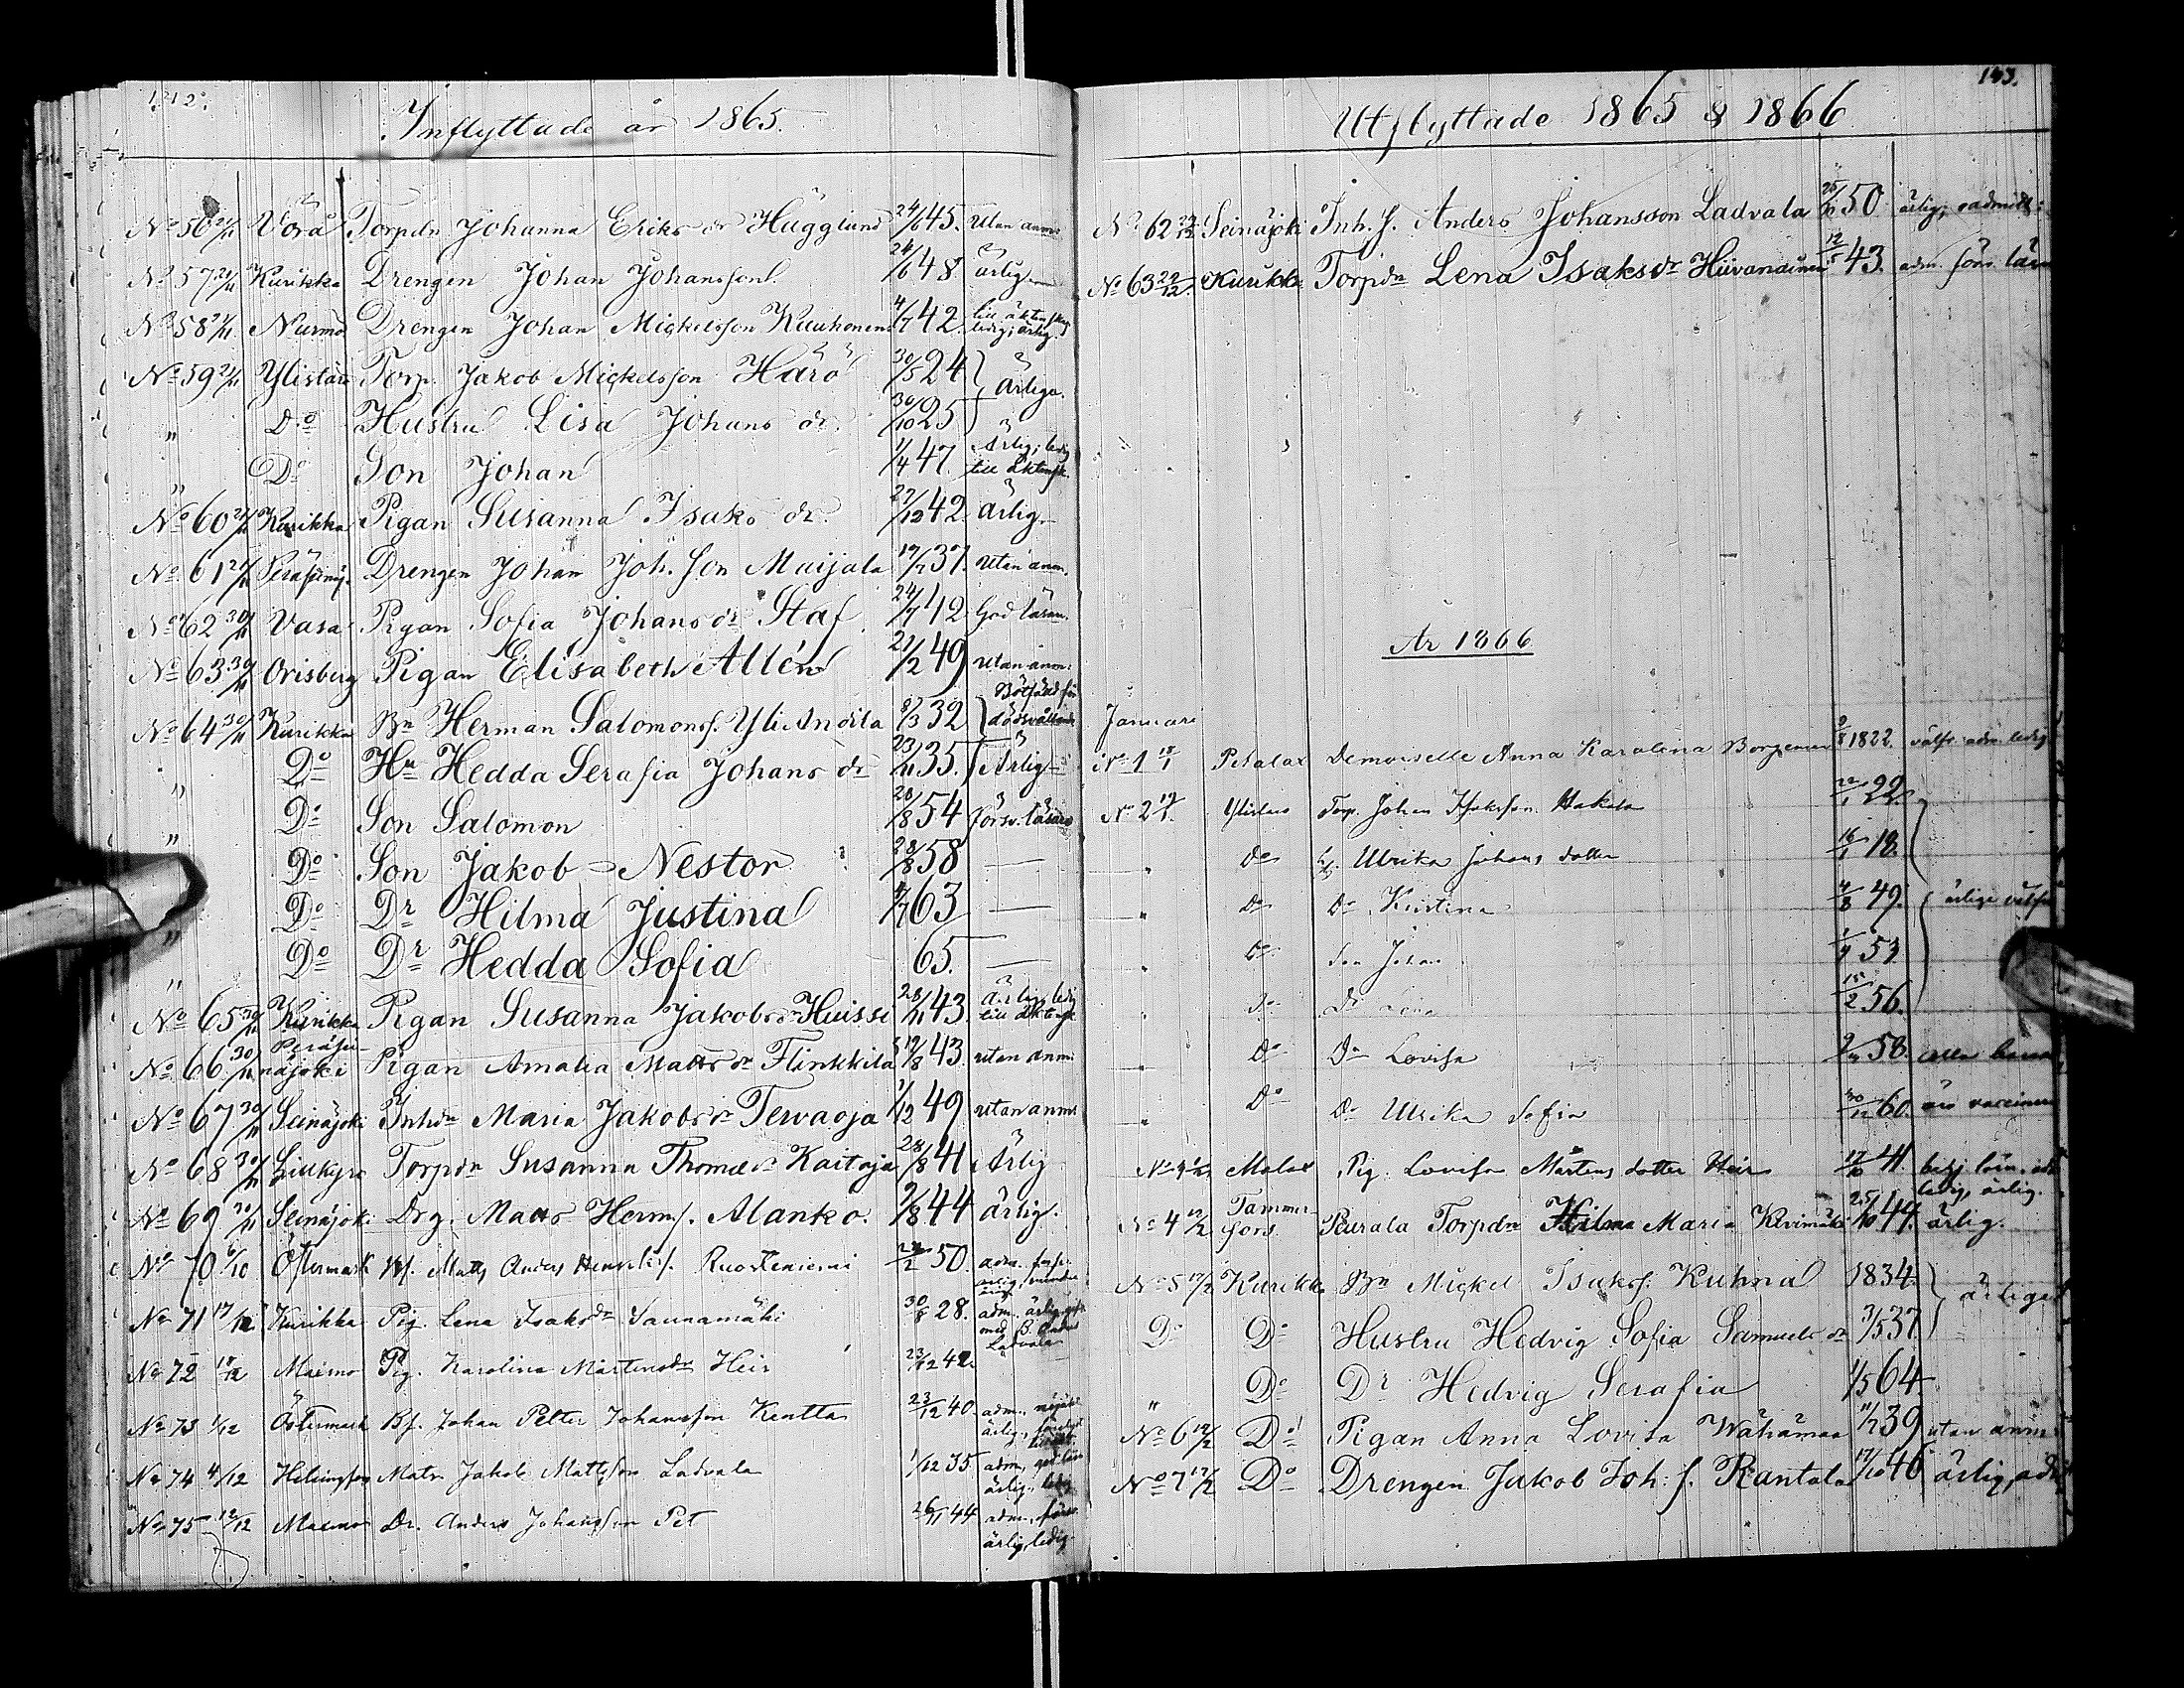 142.
Inflyttade år 1865.
No 56 21/11 Vörå Torpdn Johanna Eriks dr Hägglund 24/6 45. Utan anm:
No 57 21/11 Kurikka Drengen Johan Johansson 24/6 48 ärlig
No 58 21/11 Nurmo Drengen Johan Mickelsson Kuuhonen 4/7 42 till äktenskap ledig; ärlig.
No 59 21/11 Ylistaro Torp. Jakob Mickelsson Harö 30/5 24 } ärliga.
" Do Hustru Lisa Johans dr. 30/10 25 }
" Do Son Johan 1/4 47. Ärlig; ledig till äktensk.
No 60 21/11 Kurikka Pigan Susanna Isaks dr. 27/12 42 ärlig
No 61 21/11 Drengen Johan Joh. Son Maijala 19/7 37. Utan anm.
No 62 30/11 Vasa Pigan Sofia Johans dr Staf 24/7 42 God läsn.
No 63 30/11 Orisberg Pigan Elisabeth Allén 21/2 49 utan anm:
No 64 30/11 Kurikka Bn Herman Salomonss. Yli Andila 8/3 32 } Bötfäld för dödsvållande
" Do Hu Hedda Serafia Johans dr 23/11 35. } Ärlig
" Do Son Salomon 28/8 54 försv. läsare
" Do Son Jakob Nestor 28/8 58 —
Do Dr Hilma Justina 4/7 63 —
" Do Dr Hedda Sofia 65. —
No 65 30/11 Kurikka Pigan Susanna Jakobs dr Huissi 28/11 43. ärlig, ledig till äktensk
No 66 30/11 Peräseinäjoki Pigan Amalia Matts dr Flinkkilä 19/8 43. utan anm:
No 67 30/11 Seinäjoki Inhdn Maria Jakobs dr Tervaoja 1/12 49 utan anm:
No 68 30/11 Lillkyro Torpdn Susanna Thomæ dr Kaitoja 28/8 41 Ärlig
No 69 30/11 Seinäjoki Drg. Matts Herms. Alanko. 9/8 44 ärlig.
No 70 6/10 Östermark Bs. Matts Anders Henriks s. Ruostenieni 24/2 50. adm.
No 71 17/12 Kurikka Pig. Lena Isaks dr Saunamäki 30/8 28. adm. ärlig, gift med B. Anders Ladvala
No 72 18/12 Maxmo Pig. Karolina Mårtensdr Heir 23/12 42.
No 73 1/12 Östermark Bs. Johan Petter Johansson Kentta 23/12 40. adm., ärlig,
No 74 4/12 Helsingfors Matr Jakob Mattsson Ladvala 1/12 35 adm, god läsn ärlig, ledig
No 75 12/12 Maxmo Dr. Anders Johansson Pet 26/11 44 adm, försv. ärlig, ledig.
143.
Utflyttade 1865 & 1866
No 62 29/12 Seinäjoki Inh. s. Anders Johansson Ladvala 25/10 50 ärlig; oadmitt:
No 63 29/12 Kurikka Torpdn Lena Isaks dr Hiivanainen 12/5 43. adm. försv. läsn
År 1866
Januari
No 1 18/1 Petalax Demoiselle Anna Karolina Borgeman 9/8 1822. välfr. adm. ledig
No 2 19/1. Ylistaro Torp. Johan Isaksson Hakola 22/1 22. }
" Do h. Ulrika Johans dotter 16/1 18.
" Do Dr Kristina 4/8 49. } ärliga välfr
" Do Son Johan 1/4 53
" Do Dr Lena 15/2 56.
" Do Dr Lovisa 58. alla barnen
" Do Dr Ulrika Sofia 30/12 60. äro vaccinerade
Malax Pig. Lovisa Mårtens dotter Heir 17/10 41 ledig, ärlig.
No 4 12/2 Tammerfors. Peurala Torpdn Hilma Maria Kivimäki 25/10 44. ärlig.
No 5 12/2 Kurikka Bn Mickel Isakss. Kuhna 1834. } ärliga
Do Do Hustru Hedvig Sofia Samuels dr 3/5 37. }
" Do Dr Hedvig Serafia 1/5 64.
No 6 12/2 Do Pigan Anna Lovisa Wähämaa 11/7 39 utan anm
No 7 12/2 Do Drengen Jakob Joh. s. Rantala 17/10 46 ärlig, adm